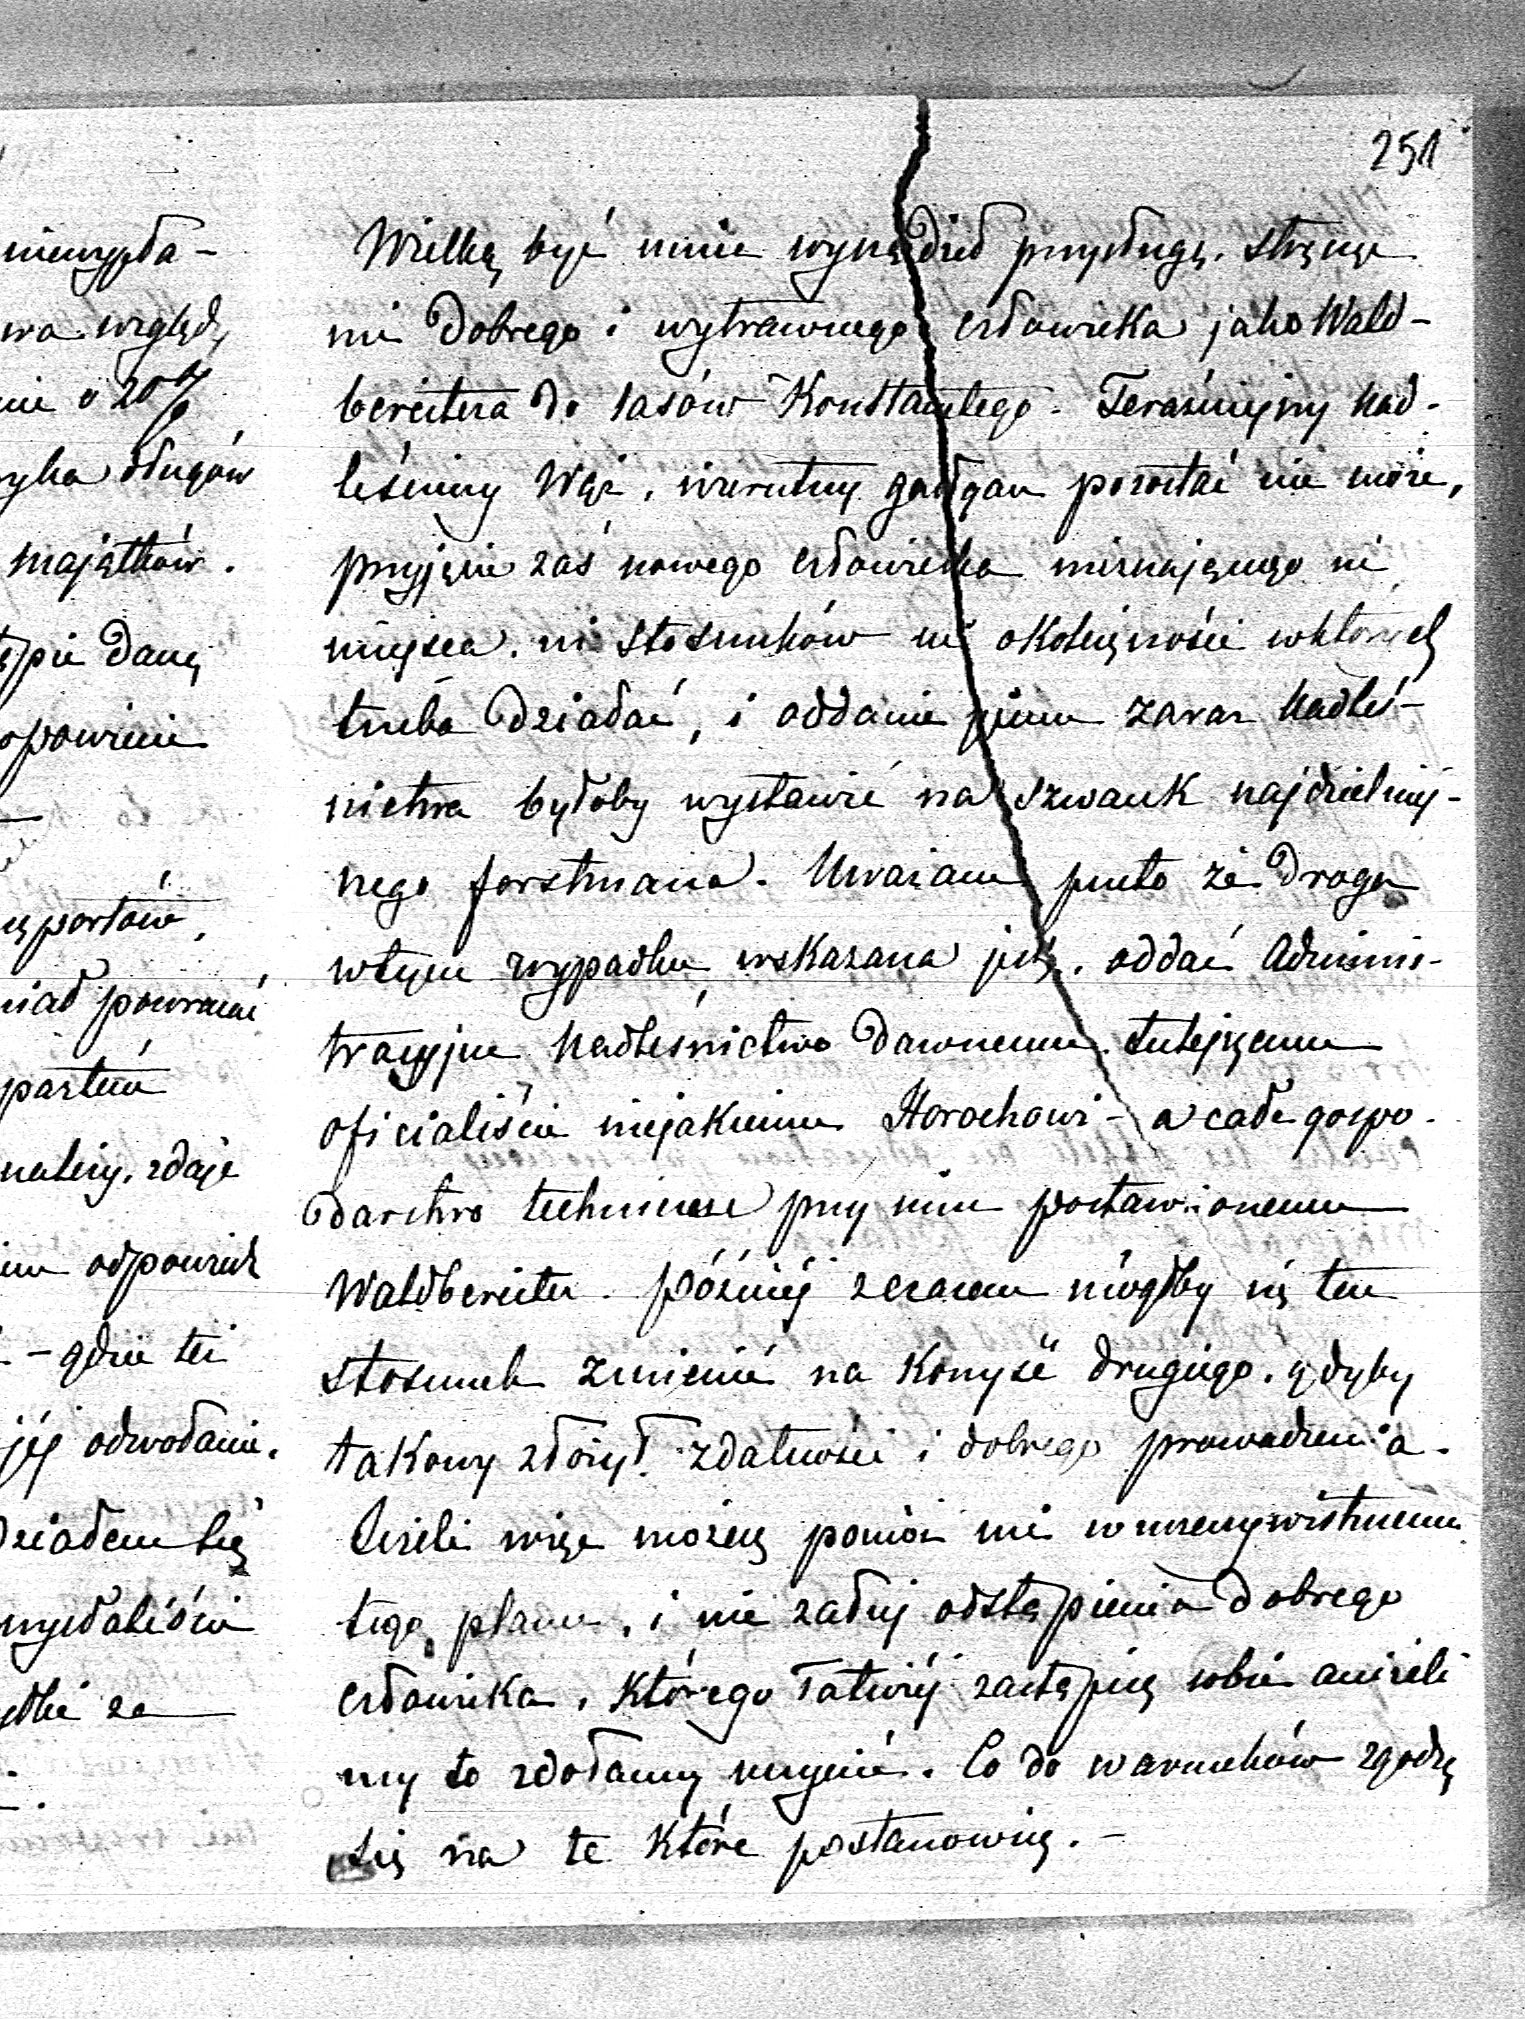 251
niewypła-
względ
o 20%
długów
majątków.
daną
powracać
zdaje
odpowiedź
- gdzie też
jéj odwołanie.
Wielką byś mnie wyrządził przysługę, stręcząc
mi dobrego i wytrawnego człowieka jako Wald-
bereitera do lasów Konstantego. Teraźniejszy Nad-
leśniczy Wąż, wierutny gałgan pozostać nie może,
przyjęcie zaś nowego człowieka nieznającego ni
miejsca, ni stosunków ni okoliczności w których
trzeba działać, i oddanie jemu zaraz Nadleś-
nictwa byłoby wystawić na szwank najdzielniej-
nego forstmana. Uważam przeto że droga
w tym wypadku wskazana jest, oddać Adminis-
tracyjne Nadleśnictwo dawnemu tutejszemu
oficialiście niejakiemu Horochowi - a całe gospo-
darstwo techniczne przy nim postawionemu
Waldbereiter. Później z czasem mógłby się ten
stosunek zmienić na korzyść drugiego, gdyby
takowy złożył zdatności i dobrego prowadzenia.
Jeżeli więc możesz pomóż mi w urzeczywistnieniu
tego planu, i nie żałuj odstąpienia dobrego
człowieka, którego łatwiéj zastąpisz sobie aniżeli
my to zdołamy uczynić. Co do warunków zgodzę
się na te które postanowisz. -